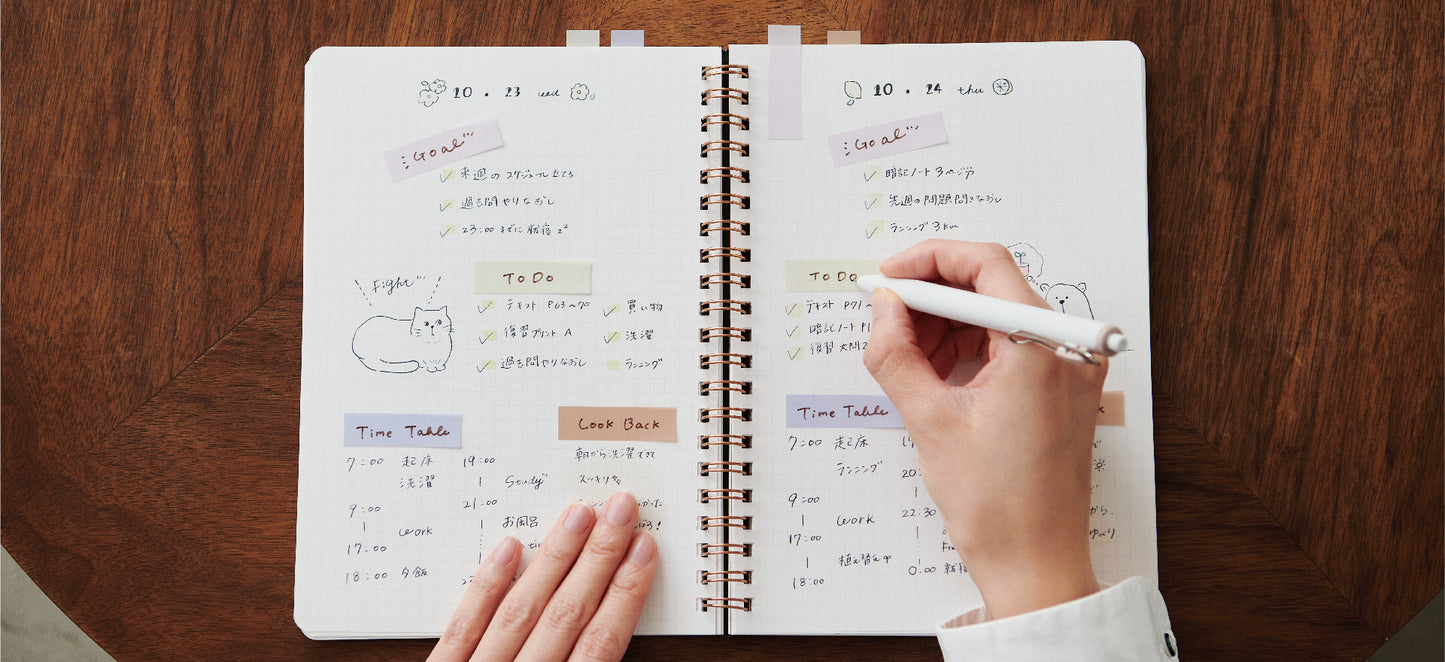 10 . 23 wed
Goal
来週のスケジュール立てる
過去問やりなおし
23:00までに就寝 z²
Fight
To Do
テキスト P63〜70
復習プリント A
過去問やりなおし
買い物
洗濯
ランニング
Time Table
7:00 起床
洗濯
9:00
| work
17:00
18:00 夕飯
19:00
| Study
21:00
お風呂
Look Back
朝から洗濯できて
スッキリ
10 . 24 thu
Goal
暗記ノート 3ページ分
先週の問題問きなおし
ランニング 3km
To Do
テキスト P71〜
暗記ノート P1
復習 大問2
Time Table
7:00 起床
ランニング
9:00
| work
17:00
| 植え替え中
18:00
20:
22:30
0:00 就寝